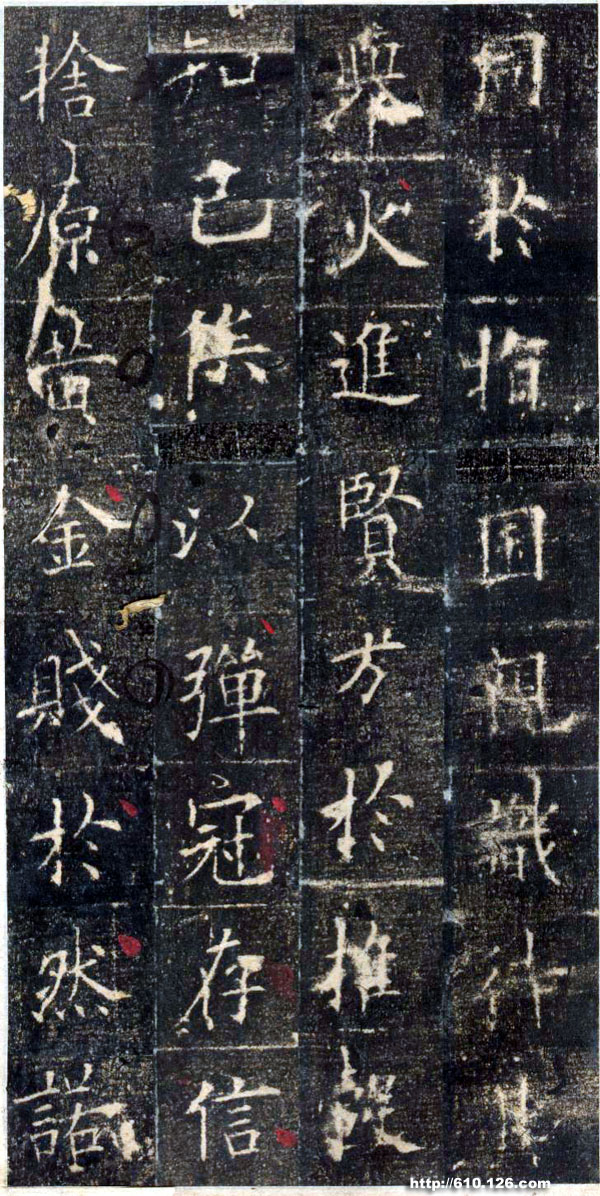 同於指囷親識待其
舉火進賢方於推轂
知己俟以彈冠存信
捨原黃金賤於然諾
http://610.126.com